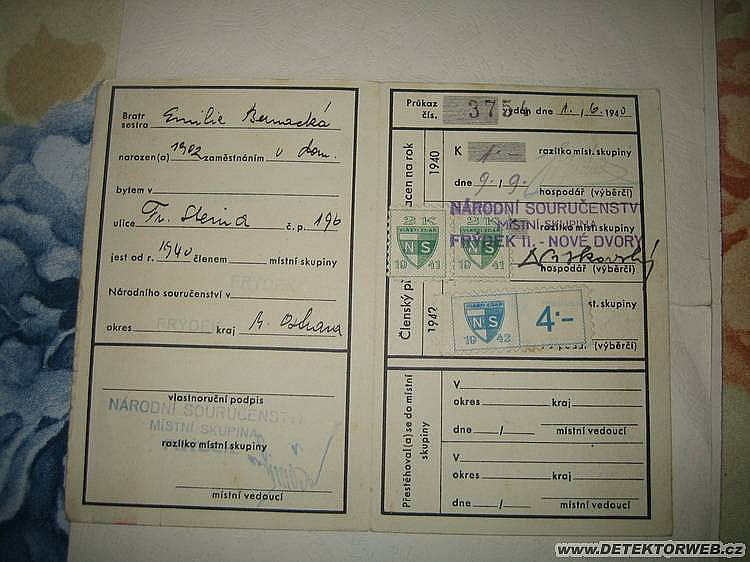 Bratr
sestra Emilie Bernacká
narozen(a) 1902 zaměstnáním v dom.
bytem v
ulice Fr. Sleina č. p. 196
jest od r. 1940 členem místní skupiny
FRÝDEK
Národního souručenství v
FRÝDEK
okres kraj M. Ostrava
vlastnoruční podpis
NÁRODNÍ SOURUČENSTVÍ
MÍSTNÍ SKUPINA
razítko místní skupiny
místní vedoucí
Průkaz
čís. 3756 vydán dne 1./6. 1940
1940
K 1.- razítko míst. skupiny
dne 9./9. hospodář (výběrčí)
NÁRODNÍ SOURUČENSTVÍ
MÍSTNÍ SKUPINA
razítko míst. skupiny
FRÝDEK II. - NOVÉ DVORY
hospodář (výběrčí)
2 K 2 K
VLASTI ZDAR VLASTI ZDAR
NS NS
19 41 19 41
Členský
1942
VLASTI ZDAR
NS
19 42
4·-
míst. skupiny
(výběrčí)
Přestěhoval(a) se do místní
skupiny
V
okres kraj
dne / místní vedoucí
V
okres kraj
dne / místní vedoucí
www.DETEKTORWEB.cz